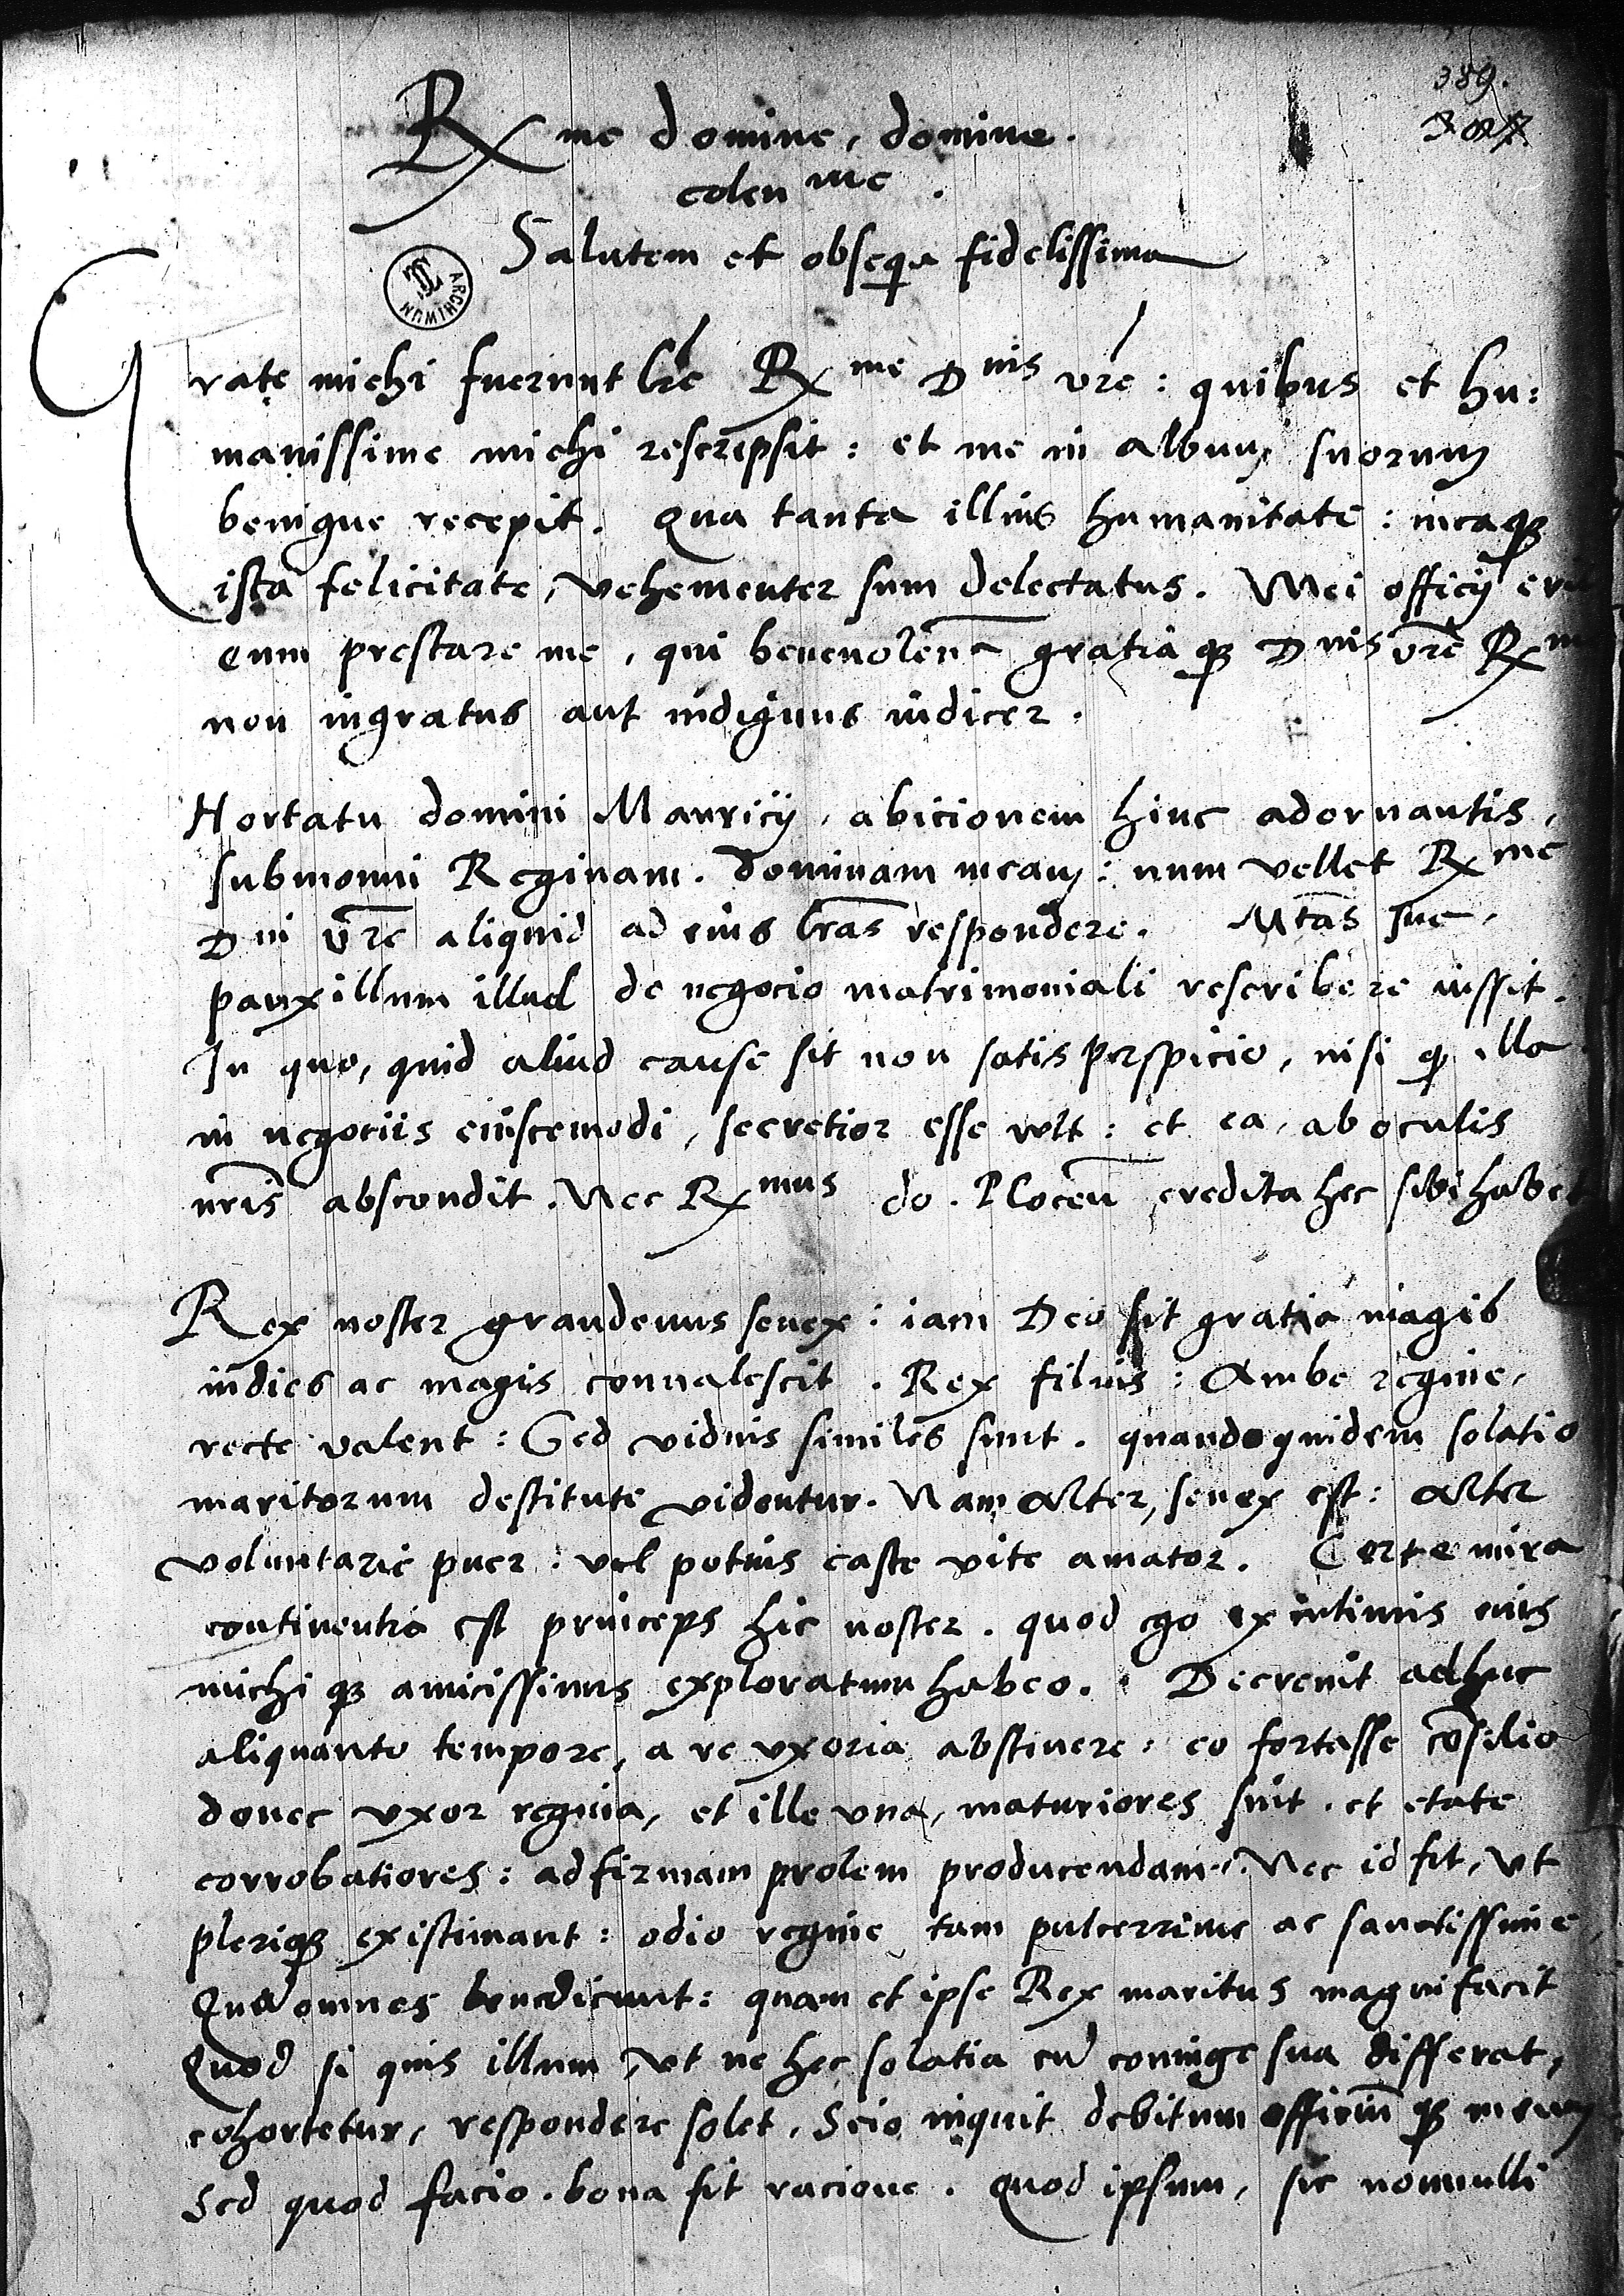 389.
Rx me domine, domine.
colen me.
Salutem et obseqa fidelissima
ARCHIWUM
Gratę michi fuerunt lre Rx me D nis vre: quibus et hu:
manissime michi rescripsit: et me in album suorum
benigne recepit. Qua tanta illius humanitate: meaqʒ
ista felicitate, vehementer sum delectatus. Mei officij
eum prestare me, qui benevolen gratia qʒ D nis vre Rx
non ingratus aut indignus iudicer.
Hortatu domini Mauricij, abicionem hinc adornantis,
submonui Reginam. dominam meam: num vellet Rx me
D ni vre aliquid ad eius lras respondere. Mtas sue,
pauxillum illud de negocio matrimoniali rescribere iussit.
In quo, quid aliud cause sit non satis perspicio, nisi q illa
in negociis eiuscemodi, secretior esse vult: et ea, ab oculis
nris abscondit. Nec Rx mus do. Plocen credita hec sibi habet
Rex noster grandevus senex: iam Deo sit gratia magis
indies ac magis convalescit. Rex filius: Ambe regine,
recte valent: Sed viduis similes sunt. quandoquidem solatio
maritorum destitute videntur. Nam alter, senex est: alter
voluntarie puer: vel potius caste vite amator. Certe mira
continentia est princeps hic noster. quod ego ex intimis eius
michi qʒ amicissimis exploratum habeo. Decrevit adhuc
aliquanto tempore, a re uxoria abstinere: eo fortasse cosilio
donec uxor regina, et ille una, maturiores sint. et etate
corrobatiores: ad firmam prolem producendam. Nec id fit, ut
pleriqʒ existimant: odio regine tam pulcerrime ac sanctissime
Qua omnes benedicunt: quam et ipse Rex maritus magni facit
Quod si quis illum, ut ne hec solatia cu coniuge sua differat,
cohortetur, respondere solet, Scio inquit debitum officiu qʒ meum
Sed quod facio. bona fit racione. Quod ipsum, sic nonnulli